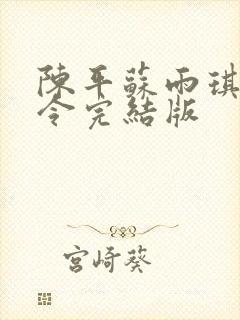 陳平蘇雨琪
令完結版
宮崎葵